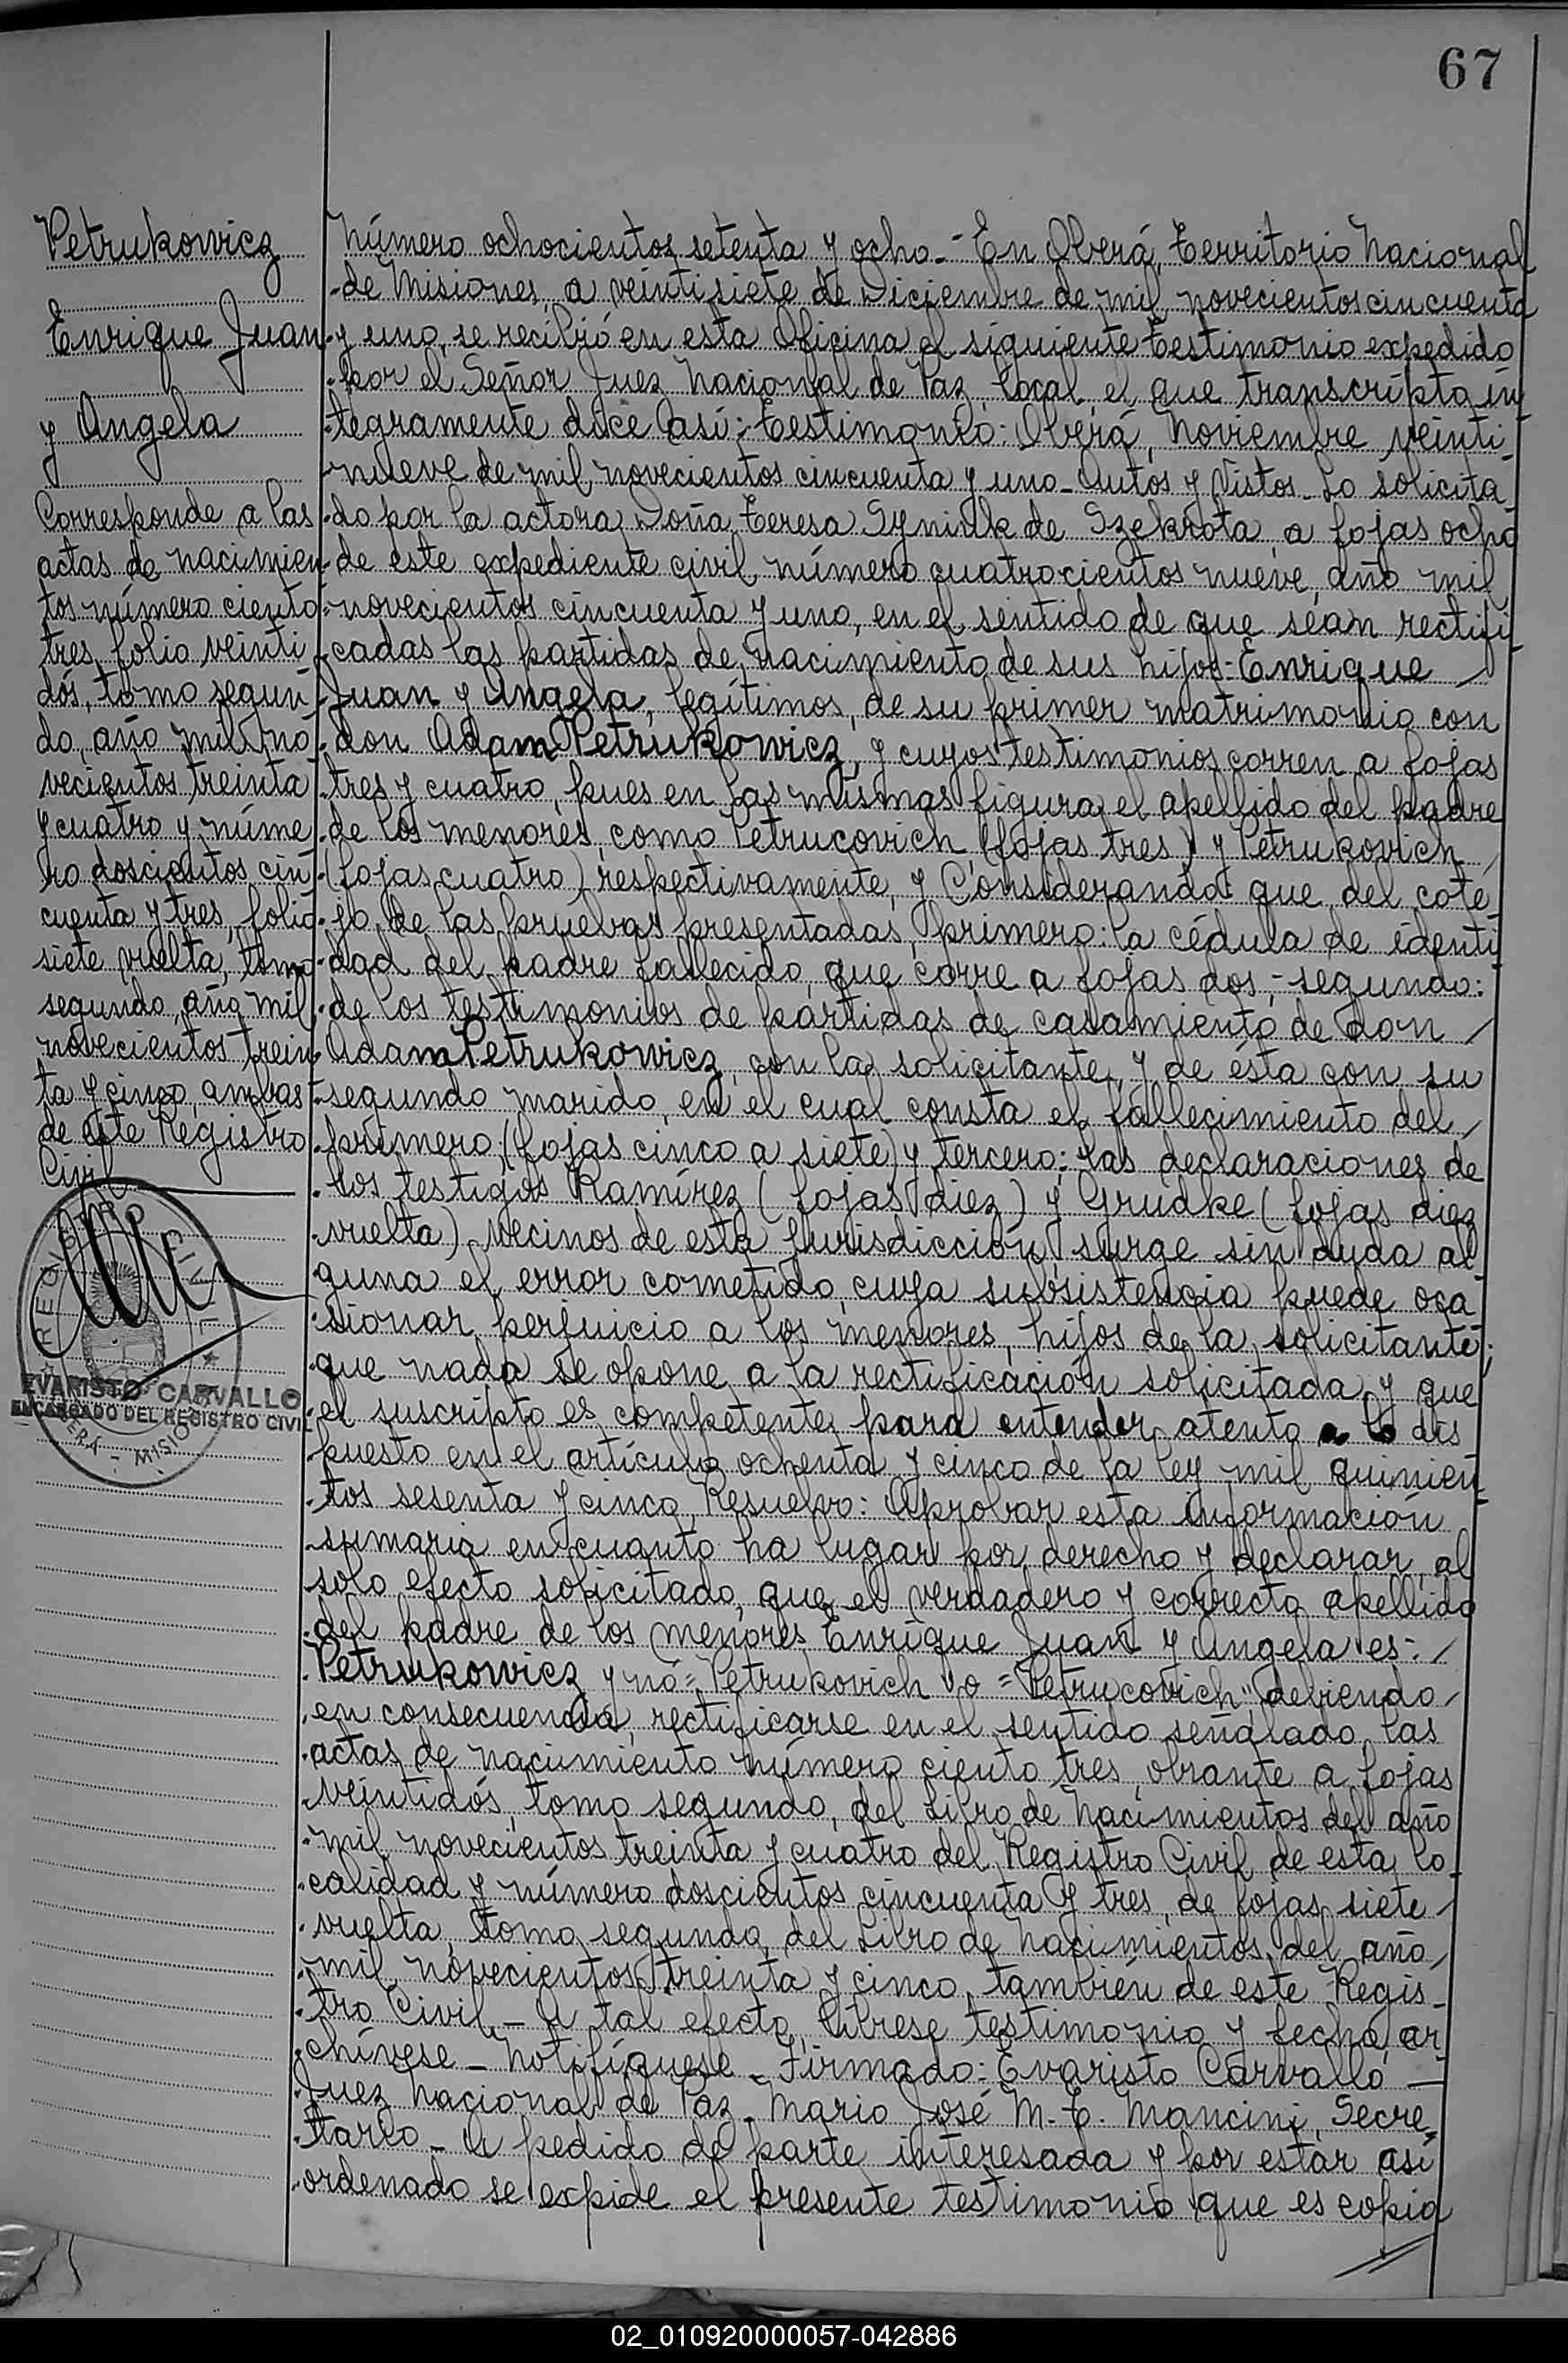 67
Petrukowicz
Enrique Juan
y Angela
Corresponde a las
actas de nacimien-
tos número ciento
tres, folio veinti
dós, tomo segun-
do, año mil no
vecientos treinta
y cuatro y núme
ro doscientos cin-
cuenta y tres, folio
siete vuelta, tomo
segundo, año mil
novecientos trein
ta y cinco, ambas
de este Registro
Civil
REGISTRO CIVIL
EVARISTO CARVALLO
ENCARGADO DEL REGISTRO CIVIL
OBERÁ - MISIONES
Número ochocientos setenta y ocho.- En Oberá, Territorio Nacional
de Misiones, a veintisiete de Diciembre de mil novecientos cincuenta
y uno, se recibió en esta Oficina el siguiente testimonio expedido
por el Señor Juez Nacional de Paz, local, el que transcripto in
tegramente dice así: Testimonio: Oberá, Noviembre veinti-
nueve de mil novecientos cincuenta y uno_ Autos y Vistos_ Lo solicita
do por la actora Doña Teresa Syniuk de Szekrota, a fojas ocho
de este expediente civil número cuatrocientos nueve, año mil
novecientos cincuenta y uno, en el sentido de que sean rectifi
cadas las partidas de nacimiento de sus hijos: Enrique
Juan y Angela, legítimos, de su primer matrimonio con
don Adam Petrukowicz, y cuyos testimonios corren a fojas
tres y cuatro, pues en las mismas figura el apellido del padre
de los menores, como Petrucovich (fojas tres) y Petrukovich
(fojas cuatro) respectivamente, y Considerando: que del cote-
jo, de las pruebas presentadas, primero: la cédula de identi
dad del padre fallecido, que corre a fojas dos,- segundo:
de los testimonios de partidas de casamiento de don
Adam Petrukowicz, con la solicitante, y de ésta con su
segundo marido, en el cual consta el fallecimiento del
primero; (fojas cinco a siete) y tercero: las declaraciones de
los testigos Ramírez (fojas diez) y Grudke (fojas diez
vuelta) vecinos de esta jurisdicción, surge sin duda al
guna el error cometido, cuya subsistencia puede oca
sionar perjuicio a los menores, hijos de la solicitante;
que nada se opone a la rectificación solicitada, y que
el suscripto es competente para entender atento a lo dis
puesto en el artículo ochenta y cinco de la ley mil quinien
tos sesenta y cinco, Resuelvo: Aprobar esta información
sumaria en cuanto ha lugar por derecho y declarar, al
solo efecto solicitado, que el verdadero y correcto apellido
del padre de los menores Enrique Juan y Angela es:
Petrukowicz y nó="Petrukovich" o ="Petrucovich", debiendo
en consecuencia, rectificarse en el sentido señalado, las
actas de nacimiento número ciento tres, obrante a fojas
veintidós, tomo segundo, del Libro de Nacimientos del año
mil novecientos treinta y cuatro del Registro Civil de esta lo
calidad y número doscientos cincuenta y tres, de fojas siete
vuelta, tomo segundo, del Libro de Nacimientos del año
mil novecientos treinta y cinco, también de este Regis-
tro Civil._ A tal efecto, líbrese testimonio y fecho, ar
chívese_ Notifíquese_ Firmado: Evaristo Carvallo _
Juez Nacional de Paz_ Mario José M. E. Mancini, Secre
tario_ A pedido de parte interesada y por estar así
ordenado se expide el presente testimonio que es copia
02_010920000057-042886